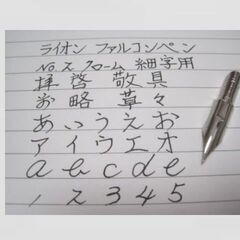 ライオン ファルコンペン
No.2 クローム 細字用
拝啓 敬具
お略 草々
あいうえお
アイウエオ
abcde
1 2 3 4 5